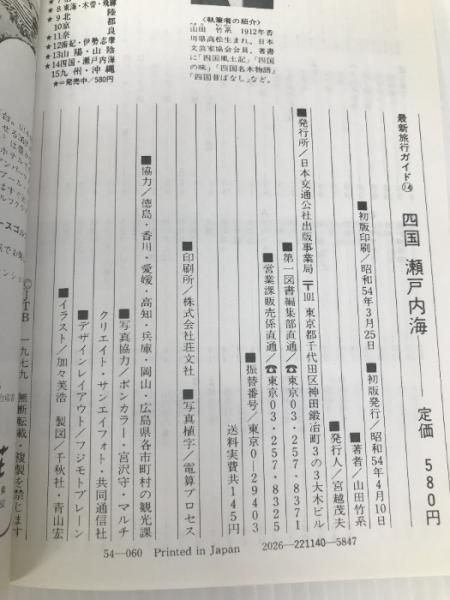 8 東海・木曽・飛騨
★9 北陸
★10 京都
★11 奈良
★12 南紀・伊勢志摩
★13 山陽・山陰
★14 四国・瀬戸内海
★15 九州・沖縄
★＝発売中/580円
〈執筆者の紹介〉
山田 竹系 1912年香
川県高松生まれ。日本
文芸家協会会員。著書
に「四国風土記」「四国
の味」「四国名木物語」
「四国昔ばなし」など。
最新旅行ガイド⑭
四国 瀬戸内海
定価 580円
■初版印刷/昭和54年3月25日
■初版発行/昭和54年4月10日
■著者/山田竹系
■発行人/宮越茂夫
■発行所/日本交通公社出版事業局 〒101 東京都千代田区神田鍛冶町3の3大木ビル
■第一図書編集部直通/☎東京03・257・8371
■営業課販売係直通/☎東京03・257・8325
■振替番号/東京0-29403
送料実費共145円
■印刷所/株式会社荘文社
■写真植字/電算プロセス
■協力/徳島・香川・愛媛・高知・兵庫・岡山・広島県各市町村の観光課
■写真協力/ボンカラー・宮沢守・マルチ
クリエイト・サンエイフォト・共同通信社
■デザインレイアウト/フジモトブレーン
■イラスト/加々美浩 製図/千秋社・青山宏
©JTB 一九七九 無断転載・複製を禁じます
54—060 Printed in Japan 2026—221140—5847